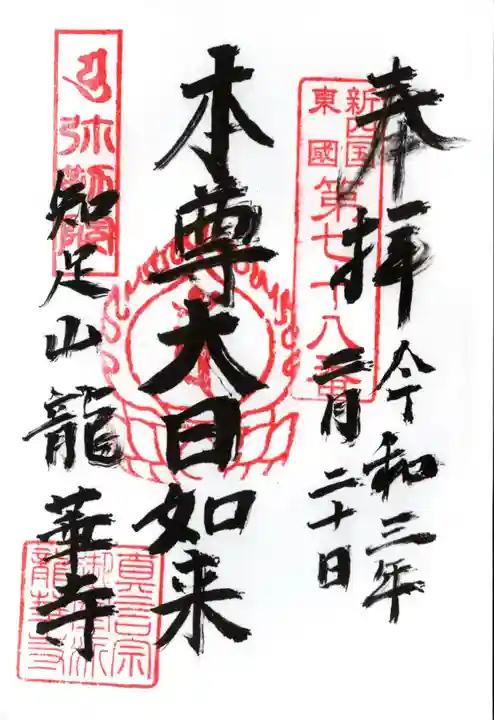 奉拝
令和三年
二月二十日
新四国
東國
第七十八番
本尊大日如来
弥勒殿
知足山龍華寺
真言宗
御室派
龍華寺